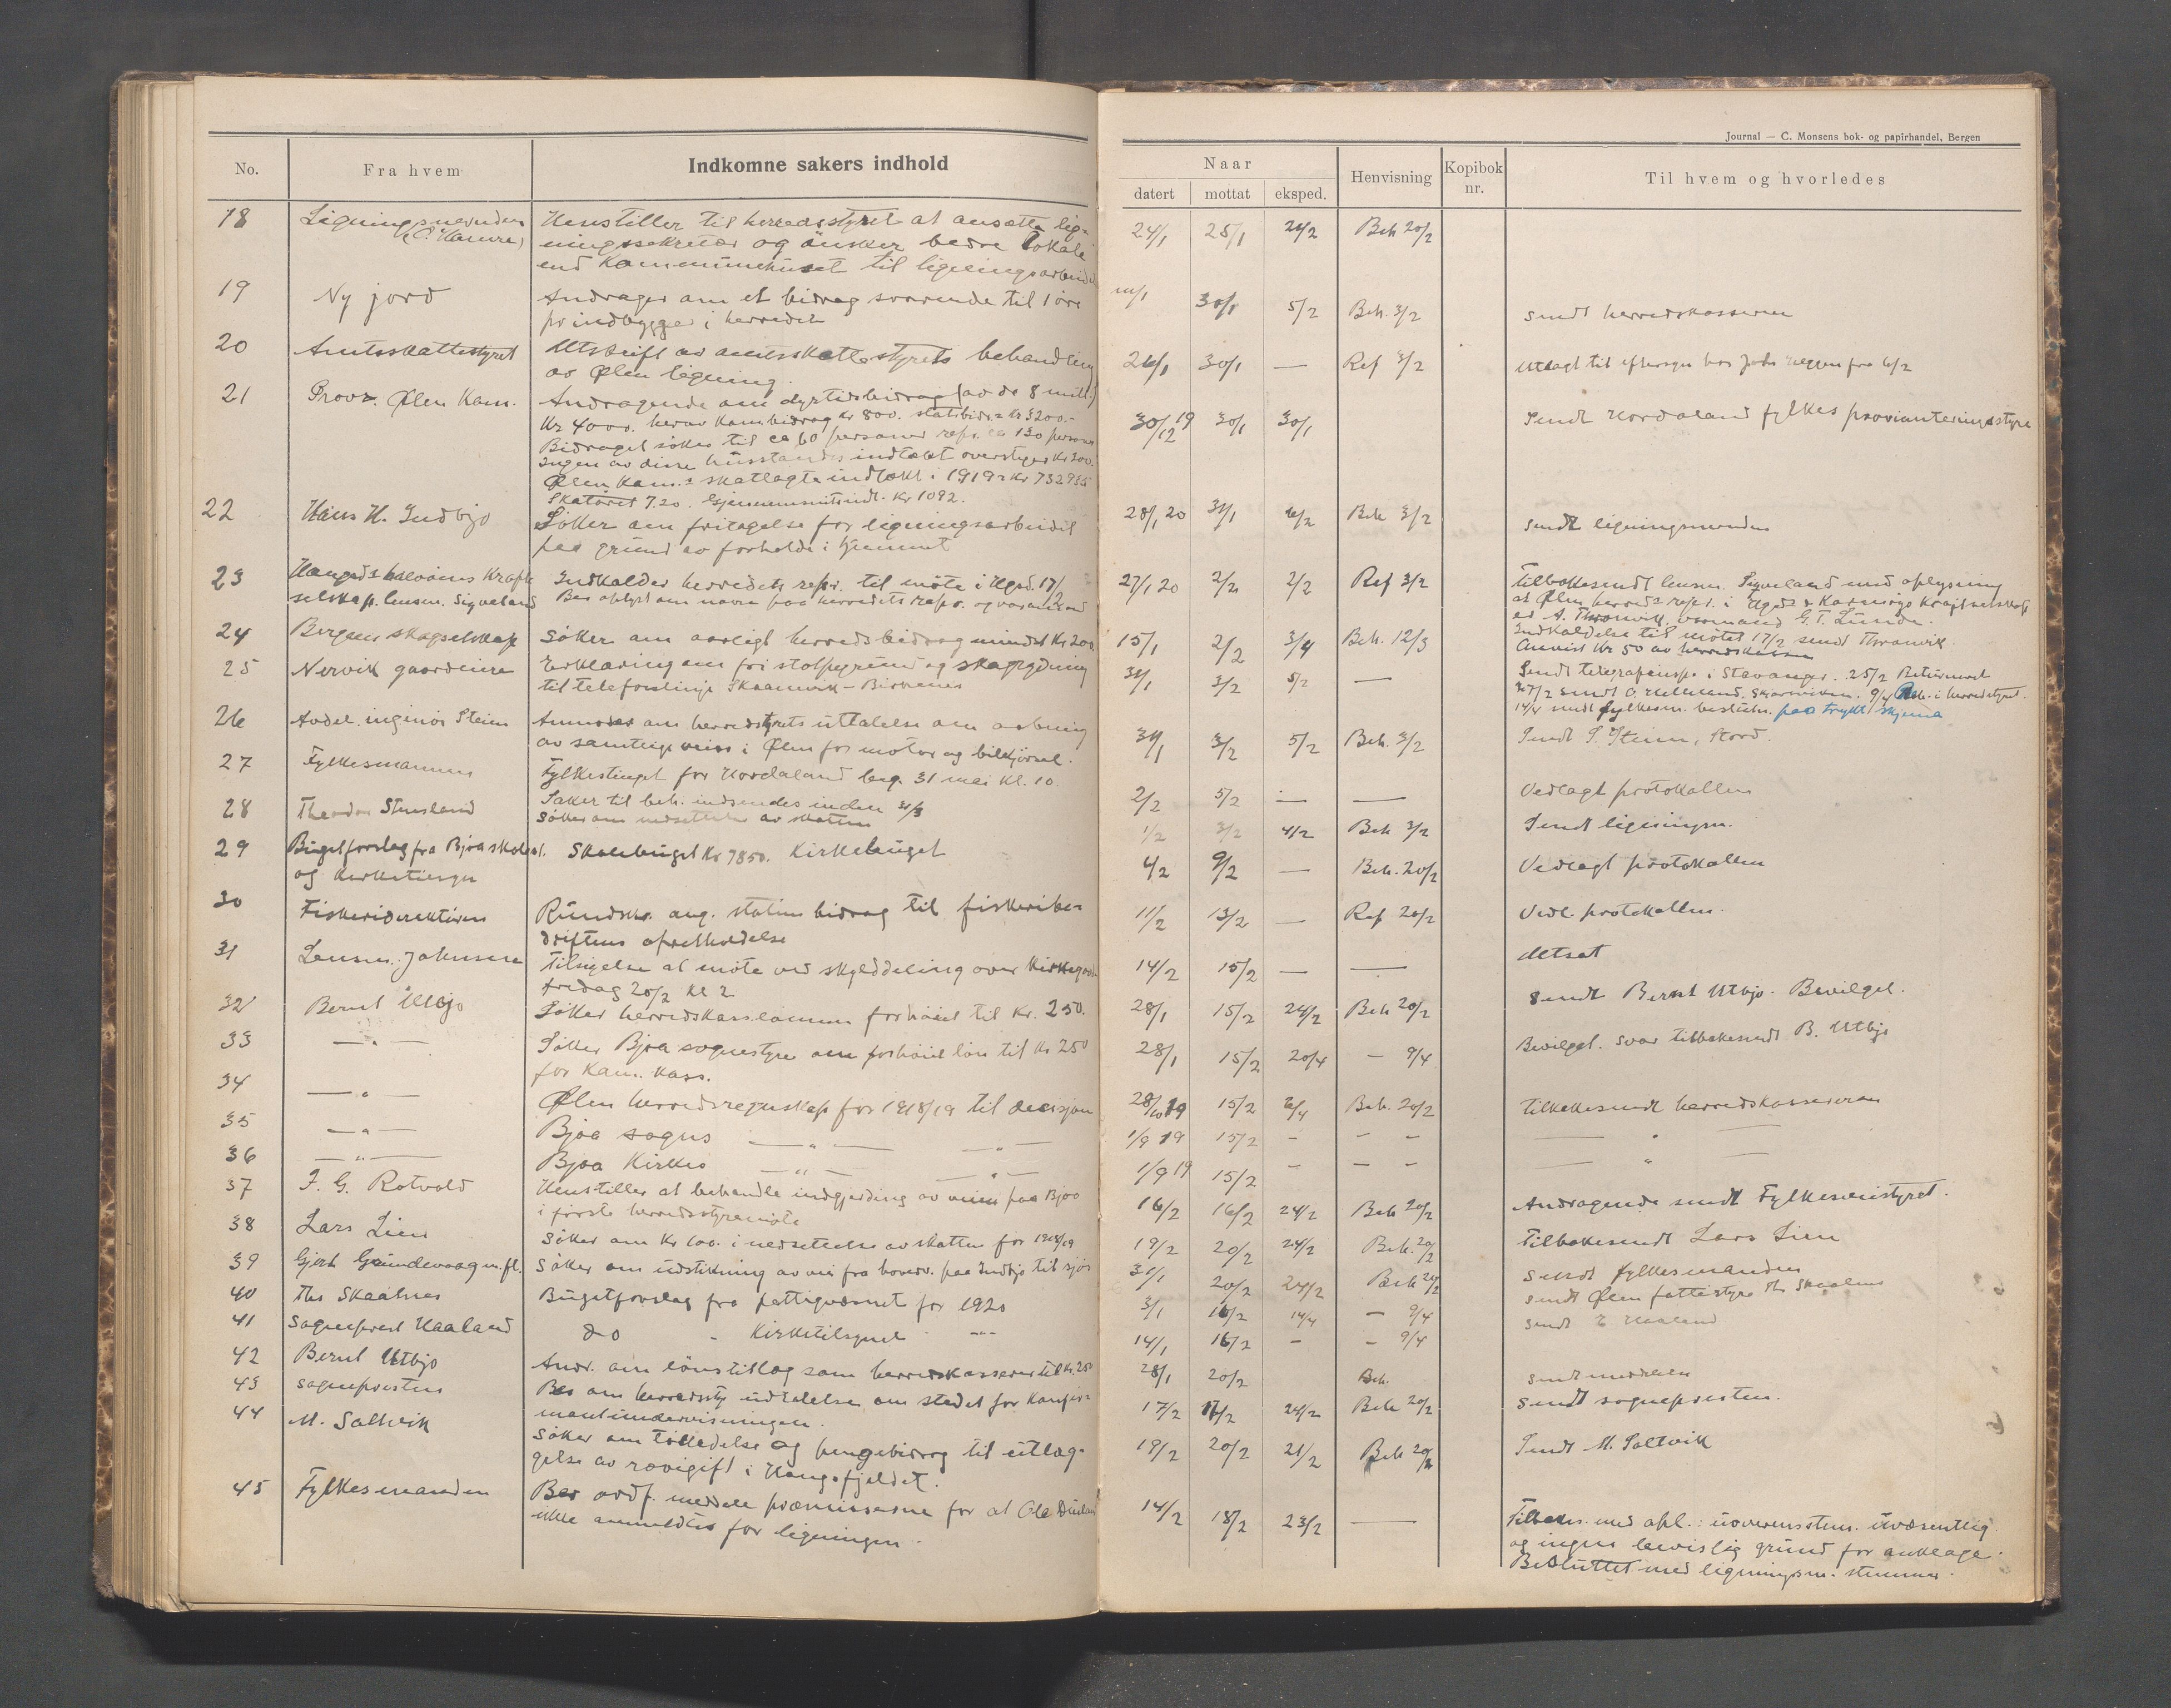 No.
Fra hvem
Indkomne sakers indhold
18
Ligningsnevnden
Henstiller til herredsstyret at ansætte lig-
ningssekretær og ønsker bedre lokale
end Kommunehuset til ligningsarbeidet
19
Ny jord
Andrager om et bidrag svarende til 1 øre
pr indbygger i herredet
20
Amtsskattestyret
Utskrift av amtsskattestyrets behandling
av Ølen ligning.
21
Prov. Ølen Kom.
Andragende om dyrtidsbidrag (av de 8 mill.)
Kr 4000. herav Kom.bidrag Kr 800. statsbidr. = Kr 3200.-
Bidraget søkes til ca 60 personer repr. ca 130 personer
Ingen av disse husstandes indtækt overstiger Kr 300.
Ølen Kom.s skatlagte indtækt i 1919 = Kr 732935
Skatøret 7.20. Gjennemsnitsindt. Kr 1092.
22
Hans H. Indbjo
Søker om fritagelse for ligningsarbeidet
paa grund av forholde i hjemmet
23
Haugesds halvøens Kraft-
selskap. lensm. Sigveland
Indkalder herredets repr. til møte i Hgsd. 17/2
Bes oplyst om navn paa herredets repr. og varamand
24
Bergens skogselskap
Søker om aarligt herredsbidrag mindst Kr 200
25
Nervik gaardeiere
Erklæring om fri stolpegrund og skogrydning
til telefonlinje Skaanevik - Birkenes
26
Avdel. ingeniør Steim
Anmodes om herredstyrets uttalelse om aabning
av samtlige veier i Ølen for motor og bilkjørsel.
27
Fylkesmannen
Fylkestinget for Hordaland beg. 31 mai Kl. 10.
Saker til beh. indsendes inden 31/3
28
Theodor Stensland
Søker om nedsettelse av skatten
29
Budgetforslag fra Bjoa skolest.
og kirketilsyn
Skolebudget Kr 7850. Kirkebudget
30
Fiskeridirektøren
Rundskr. ang. statens bidrag til fiskeribe-
driftens opretholdelse
31
Lensm. Johnsen
Tilsigelse at møte ved skylddeling over Kirkegaard
fredag 20/2 Kl 2
32
Bernt Utbjo
Søker herredskasselønnen forhøiet til Kr. 250.
33
— " —
Søker Bjoa sognestyre om forhøiet løn til Kr 250
for Kom. Kass.
34
— " —
Ølen herredsregnskap for 1918/19 til decisjon
35
— " —
Bjoa sogns — " — — " —
36
— " —
Bjoa Kirkes — " — — " —
37
F. G. Rotvold
Henstiller at behandle indgjerding av veien paa Bjoa
i første herredsstyremøte
38
Lars Lien
Søker om Kr 100. i nedsettelse av skatten for 1918/19
39
Gjert Grundevaag m.fl.
Søker om udstikning av vei fra hovedv. paa Indbjo til sjø
40
Ths Skaalnes
Budgetforslag fra fattigvæsnet for 1920
41
Sogneprest Haaland
do - Kirketilsynet - " -
42
Bernt Utbjo
Andr. om lønstillæg som herredskasserer til Kr. 250
43
Sognepresten
Ber om herredsstyr. udtalelse om stedet for Konfir-
mantundervisningen.
44
M. Saltvik
Søker om tilladelse og pengebidrag til utlæg-
gelse av rævigift i Haugefjeldet.
45
Fylkesmanden
Ber ordf. meddele præmisserne for at Ole
ikke anmeldtes for ligningen.
Journal — C. Monsens bok- og papirhandel, Bergen
Naar
datert
mottat
eksped.
Henvisning
Kopibok
nr.
Til hvem og hvorledes
24/1 25/1 24/2 Beh 20/2
30/1 5/2 Beh. 3/2 sendt herredskasseren
26/1 30/1 — Ref 3/2 Utlagt til eftersyn hos fra 6/2
30/12 19 30/1 30/1 Sendt Hordaland fylkes provianteringsstyre
28/1 20 31/1 6/2 Beh 3/2 sendt ligningsnevnden
27/1 20 2/2 2/2 Ref 3/2 Tilbakesendt lensm. Sigveland med oplysning
at Ølen herreds repr. i Hgsds & Karmøys Kraftselskap
er A. Thronvik, varemand G. T. Lunde.
Indkaldelse til møtet 17/2 sendt Thronvik.
15/1 2/2 3/4 Beh. 12/3 Anvist Kr 50 av herredskassen
31/1 3/2 5/2 — Sendt telegrafinsp. i Stavanger. 25/2 Returneret
27/2 sendt 9/4 Beh. i herredstyret.
14/4 sendt fylkesm. beslutn. paa trykt skjema
31/1 3/2 5/2 Beh. 3/2 Sendt S. Steim, Stord.
2/2 5/2 — — Vedlagt protokollen
1/2 3/2 4/2 Beh 3/2 Sendt ligningsn.
4/2 9/2 — Beh. 20/2 Vedlagt protokollen
11/2 13/2 — Ref 20/2 Vedl. protokollen.
14/2 15/2 — — Utsat
28/1 15/2 24/2 Beh 20/2 Sendt Bernt Utbjo. Bevilget.
28/1 15/2 20/4 — 9/4 Bevilget. Svar tilbakesendt B. Utbjo
28/10 19 15/2 6/4 Beh. 20/2 Tilbakesendt herredskassereren
1/9 19 15/2 - - - — " —
1/9 19 15/2 - - - — " —
16/2 16/2 24/2 Beh 20/2 Andragende sendt Fylkesveistyret.
19/2 20/2 24/2 Beh. 20/2 Tilbakesendt Lars Lien
31/1 20/2 24/2 Beh 20/2 sendt fylkesmanden
3/1 16/2 14/4 — 9/4 sendt Ølen fattigstyre Ths Skaalnes
14/1 16/2 - - 9/4 sendt Haaland
28/1 20/2 Beh. sendt meddelelse
17/2 17/2 24/2 Beh 20/2 Sendt sognepresten.
19/2 20/2 21/2 Beh 20/2 Sendt M. Saltvik
14/2 18/2 23/2 — Tilbakes. med opl.: uoverensstem. uvæsentlig
og ingen bevislig grund for anklage.
Besluttet med ligningsn. stemmer.